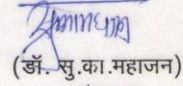 (डॉ. सु.का.महाजन)